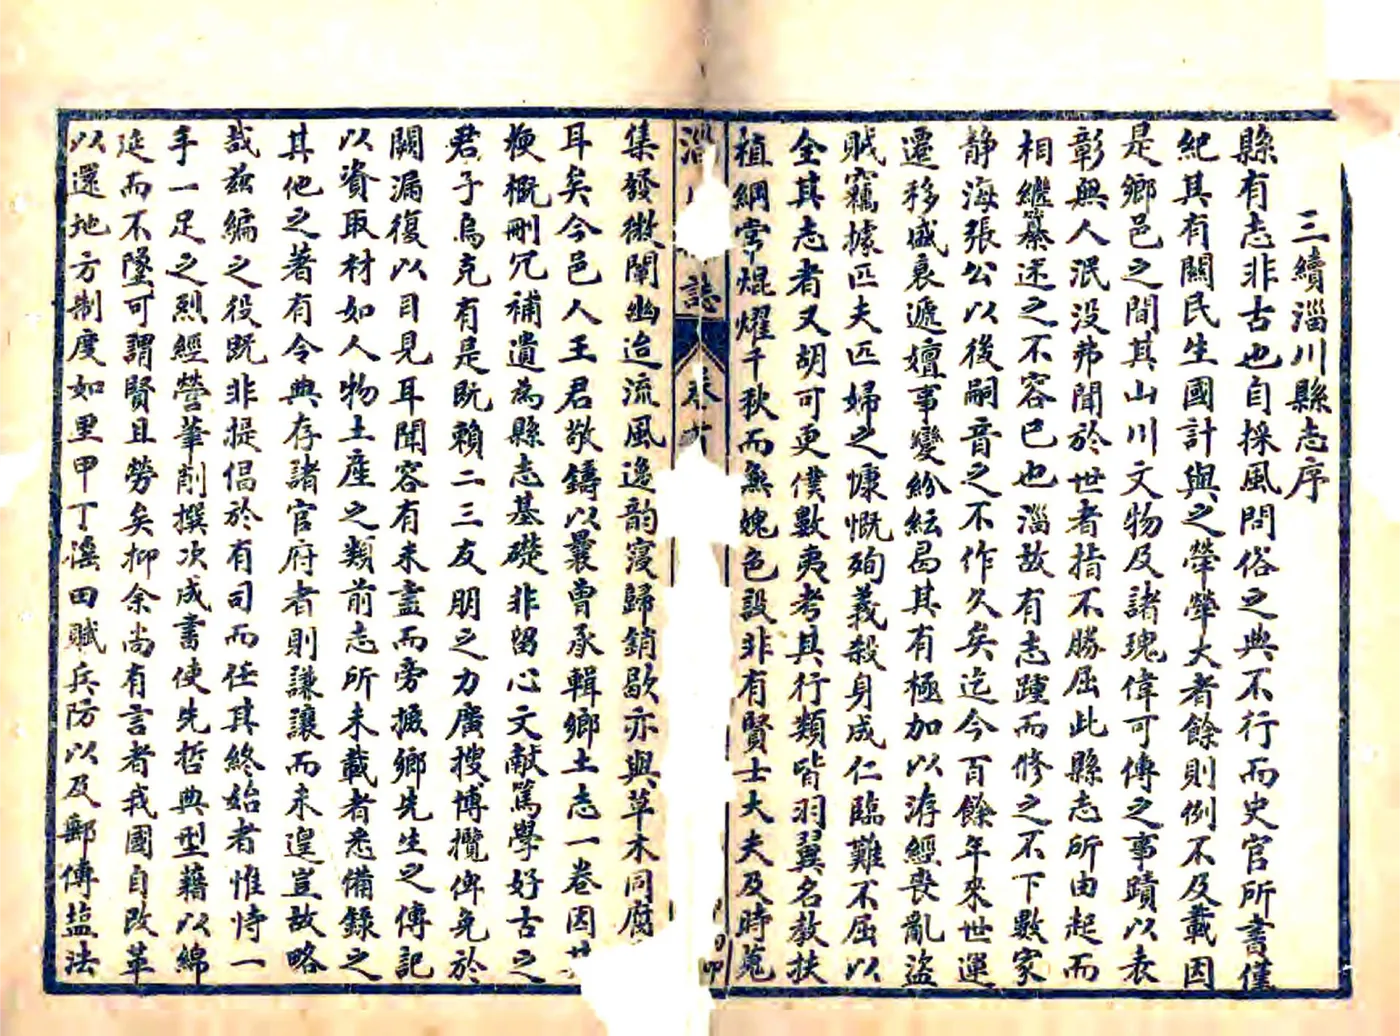 三續淄川縣志序
縣有志非古也自採風問俗之典不行而史官所書僅
紀其有關民生國計與之犖犖大者餘則例不及載因
是鄉邑之間其山川文物及諸瑰偉可傳之事蹟以表
彰無人泯没弗聞於世者指不勝屈此縣志所由起而
相繼纂述之不容已也淄故有志踵而修之不下數家
静海張公以後嗣音之不作久矣迄今百餘年來世運
遷移盛衰遞嬗事變紛紜曷其有極加以洊經喪亂盜
賊竊據匹夫匹婦之慷慨殉義殺身成仁臨難不屈以
全其志者又胡可更僕數夷考其行類皆羽翼名教扶
植綱常焜燿千秋而無媿色設非有賢士大夫及時蒐
淄 誌 卷
集發微闡幽迨流風逸韵寖歸銷歇亦與草木同腐
耳矣今邑人王君敬鑄以曩曾承輯鄉土志一卷因
梗概刪冗補遺為縣志基礎非留心文献篤學好古之
君子烏克有是既賴二三友朋之力廣搜博攬俾免於
闕漏復以目見耳聞容有未盡而旁摭鄉先生之傳記
以資取材如人物土産之類前志所未載者悉備錄之
其他之著有令典存諸官府者則謙讓而未遑豈故略
哉茲編之役既非提倡於有司而任其終始者惟恃一
手一足之烈經營筆削撰次成書使先哲典型藉以綿
延而不墜可謂賢且勞矣抑余尚有言者我國自改革
以還地方制度如里甲丁徭田賦兵防以及郵傳盐法